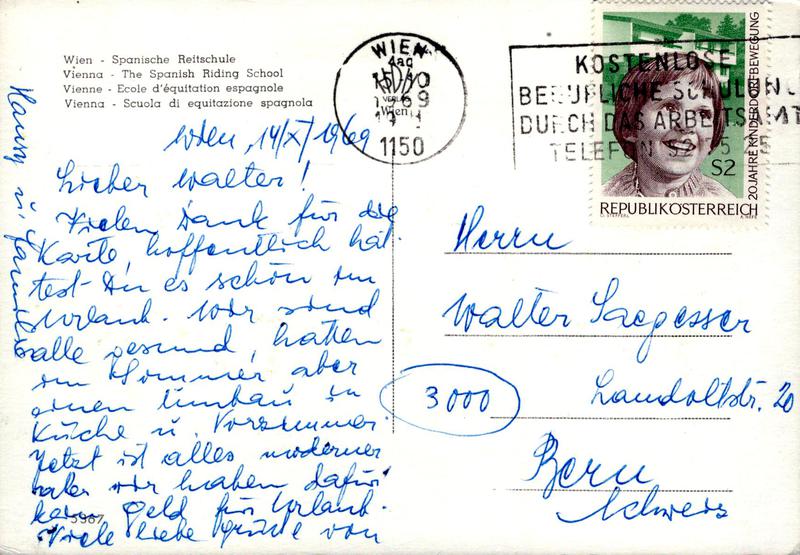 Wien - Spanische Reitschule
Vienna - The Spanish Riding School
Vienne - Ecole d'équitation espagnole
Vienna - Scuola di equitazione spagnola
WIEN
1150
KOSTENLOSE
BERUFLICHE SCHULUNG
DURCH DAS ARBEITSAMT
TELEFON
S2
20 JAHRE KINDERDORFBEWEGUNG
REPUBLIK ÖSTERREICH
Wien, 14/X/1969
Lieber Walter!
Vielen Dank für die
Karte, hoffentlich hat-
test Du es schön im
Urlaub. Wir sind
alle gesund, hatten
im Sommer aber
einen Umbau in
Küche u. Vorzimmer.
Jetzt ist alles moderner
aber wir haben dafür
kein Geld für Urlaub.
Viele liebe Grüße von
u. Familie
5987
Herrn
Walter Saegesser
Landoltstr. 20
3000
Bern
Schweiz